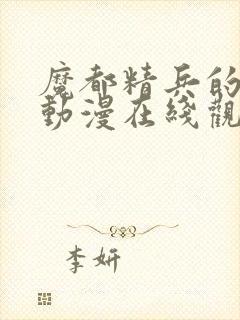 魔都精兵的
動漫在綫觀
李妍